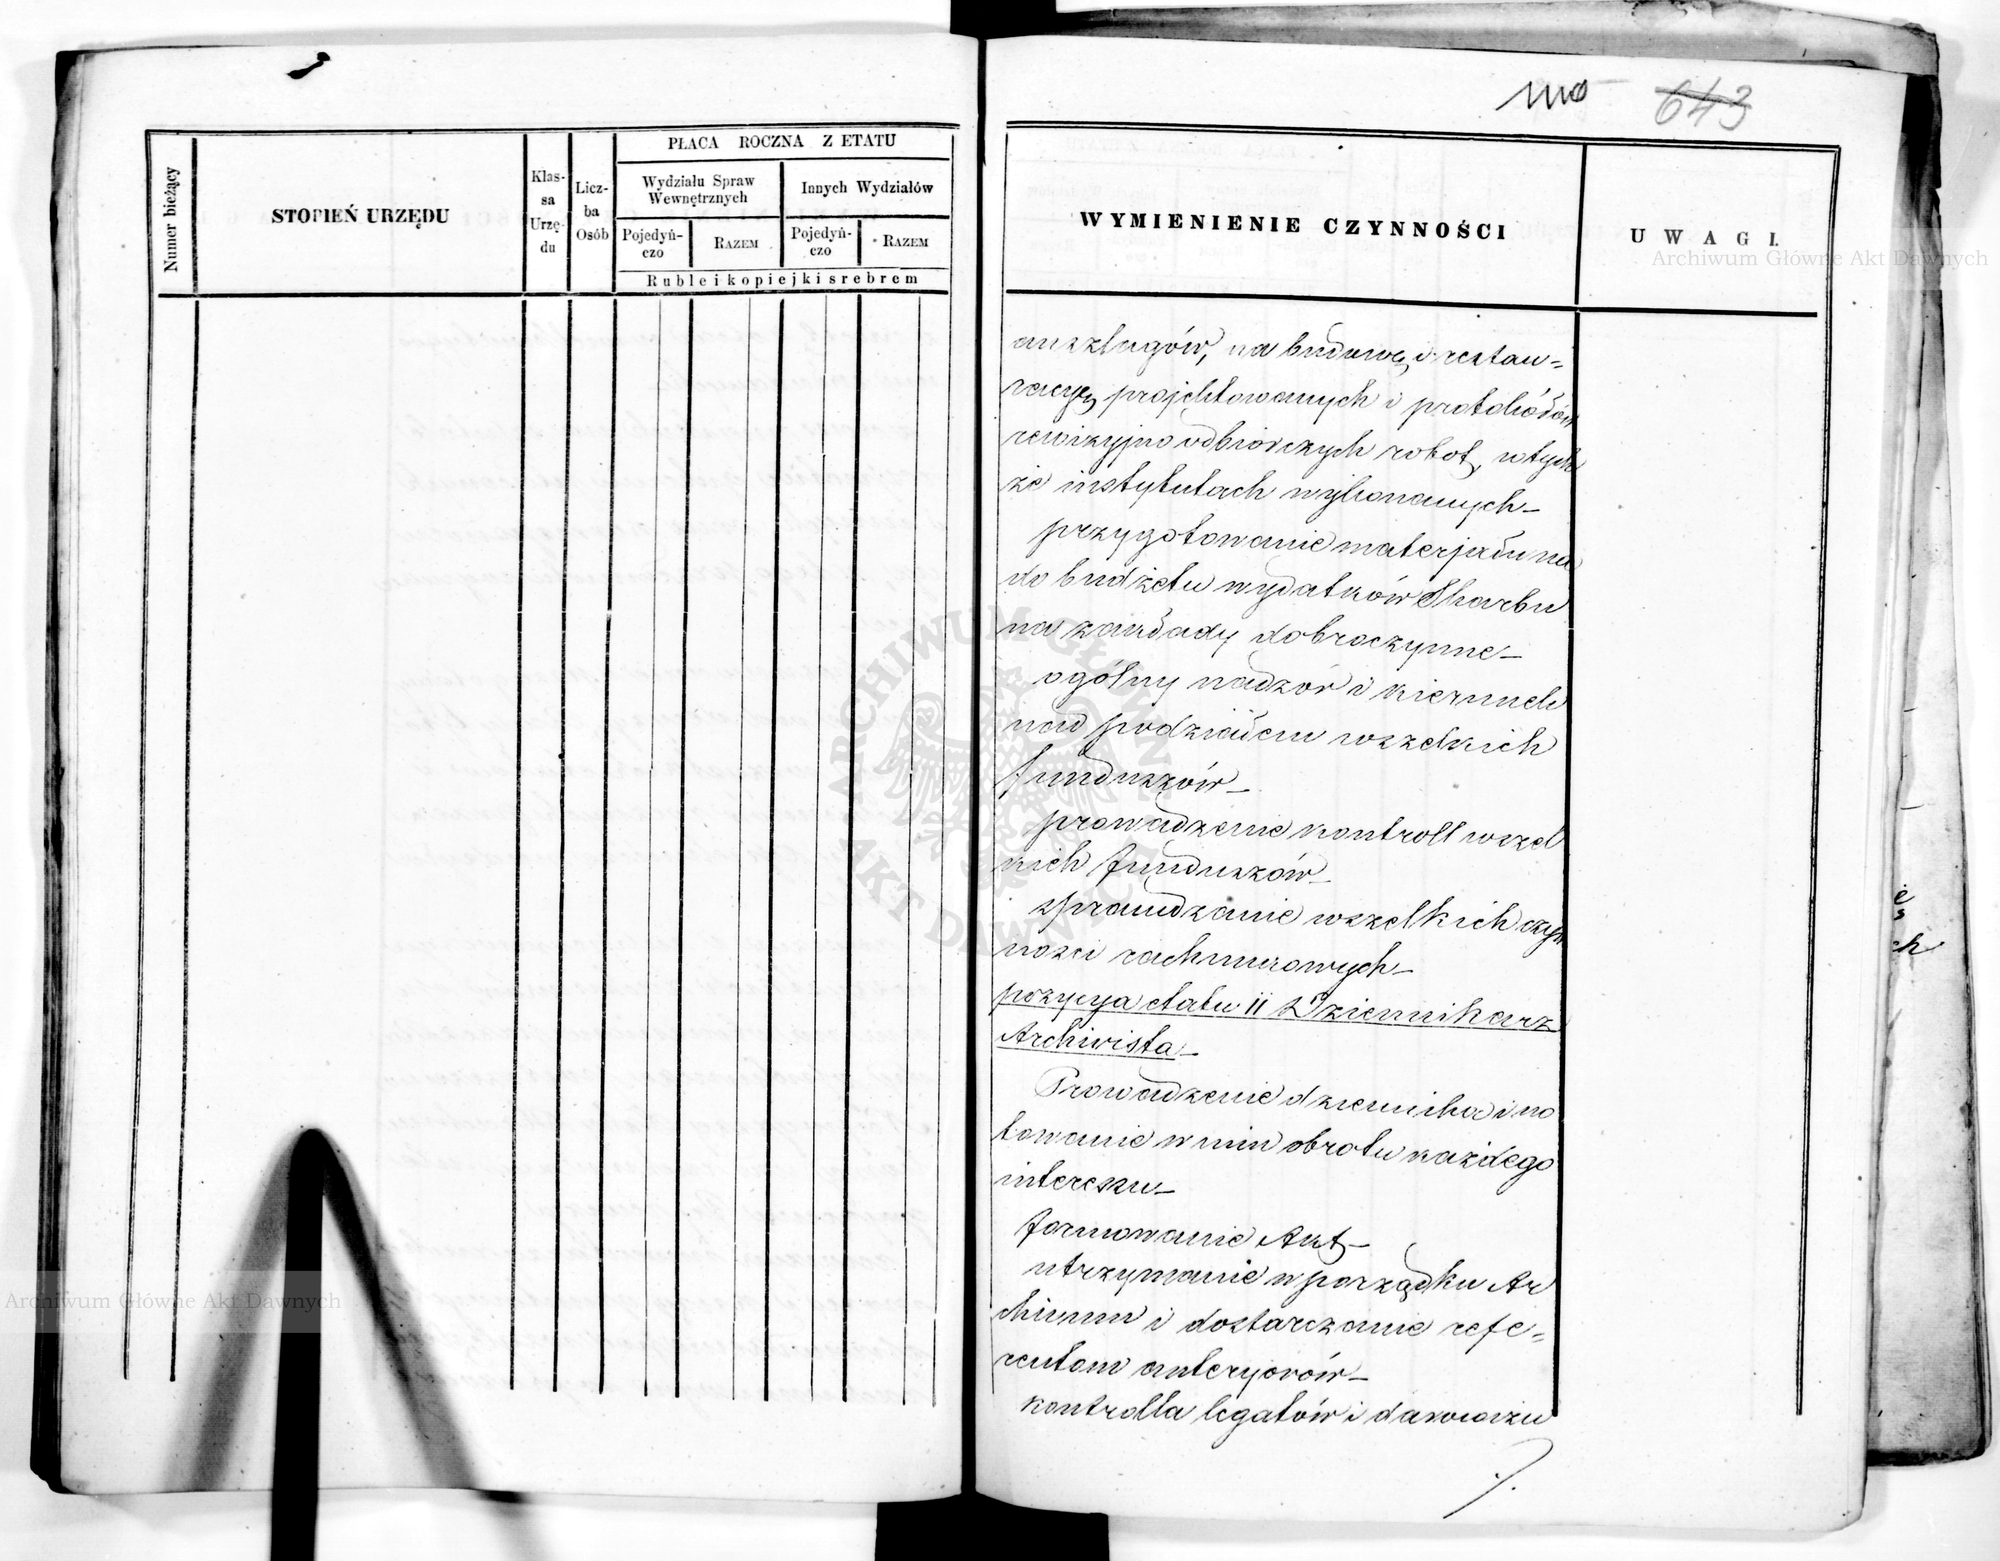 PŁACA ROCZNA Z ETATU
Numer bieżący
STOPIEŃ URZĘDU
Klas-
sa
Urzę-
du
Licz-
ba
Osób
Wydziału Spraw
Wewnętrznych
Innych Wydziałów
Pojedyń-
czo
RAZEM
Pojedyń-
czo
RAZEM
Ruble i kopiejki srebrem
643
WYMIENIENIE CZYNNOŚCI
UWAGI.
Archiwum Główne Akt Dawnych
anszlagów, na budowę i restau=
racyę projektowanych i protokółów
rewizyjno odbiorczych robot, w tych
że instytutach wykonanych_
przygotowanie materjału na
do budżetu wydatków Skarbu
na zakłady dobroczynne_
ogólny nadzór i kierunek
nad podziałem wszelkich
funduszów_
prowadzenie kontroll wszel
kich funduszów_
sprawdzanie wszelkich czyn
ności rachunkowych_
pozycya etatu 11 Dziennikarz
Archiwista_
Prowadzenie dziennika i no
towanie w nim obrotu każdego
interesu_
formowanie Akt_
utrzymanie w porządku Ar
chiwum i dostarczanie refe=
rentom anteryorów_
kontrolla legatów i darowizn
./.
ARCHIWUM GŁÓWNE
AKT DAWNYCH
Archiwum Główne Akt Dawnych